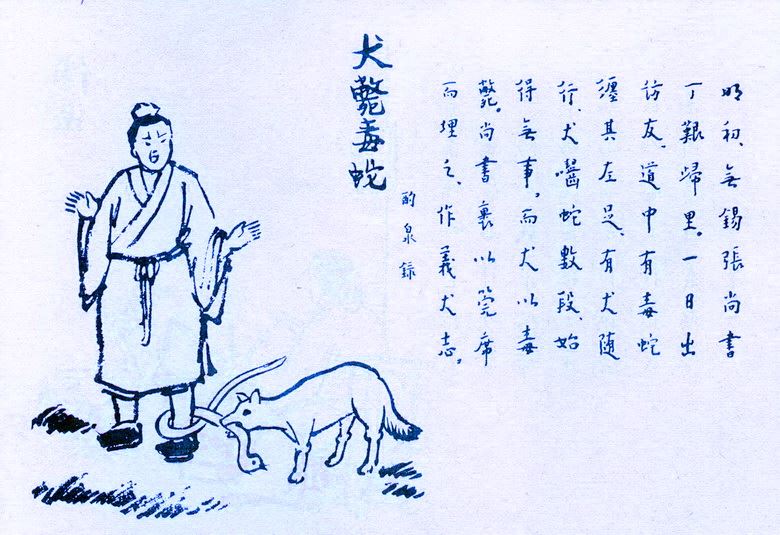 明初、無錫張尚書
丁艱歸里。一日出
訪友、道中有毒蛇
纏其左足、有犬隨
行、犬嚙蛇數段、始
得無事。而犬以毒
斃。尚書裹以莞席
而埋之、作義犬志。
酌泉錄
犬斃毒蛇